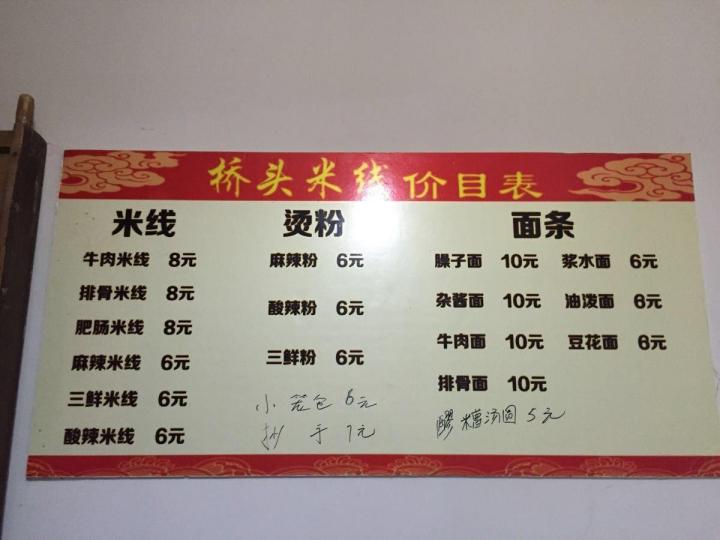 桥头米线价目表
米线
牛肉米线 8元
排骨米线 8元
肥肠米线 8元
麻辣米线 6元
三鲜米线 6元
酸辣米线 6元
烫粉
麻辣粉 6元
酸辣粉 6元
三鲜粉 6元
小笼包 6元
抄手 7元
面条
臊子面 10元 浆水面 6元
杂酱面 10元 油泼面 6元
牛肉面 10元 豆花面 6元
排骨面 10元
醪糟汤圆 5元